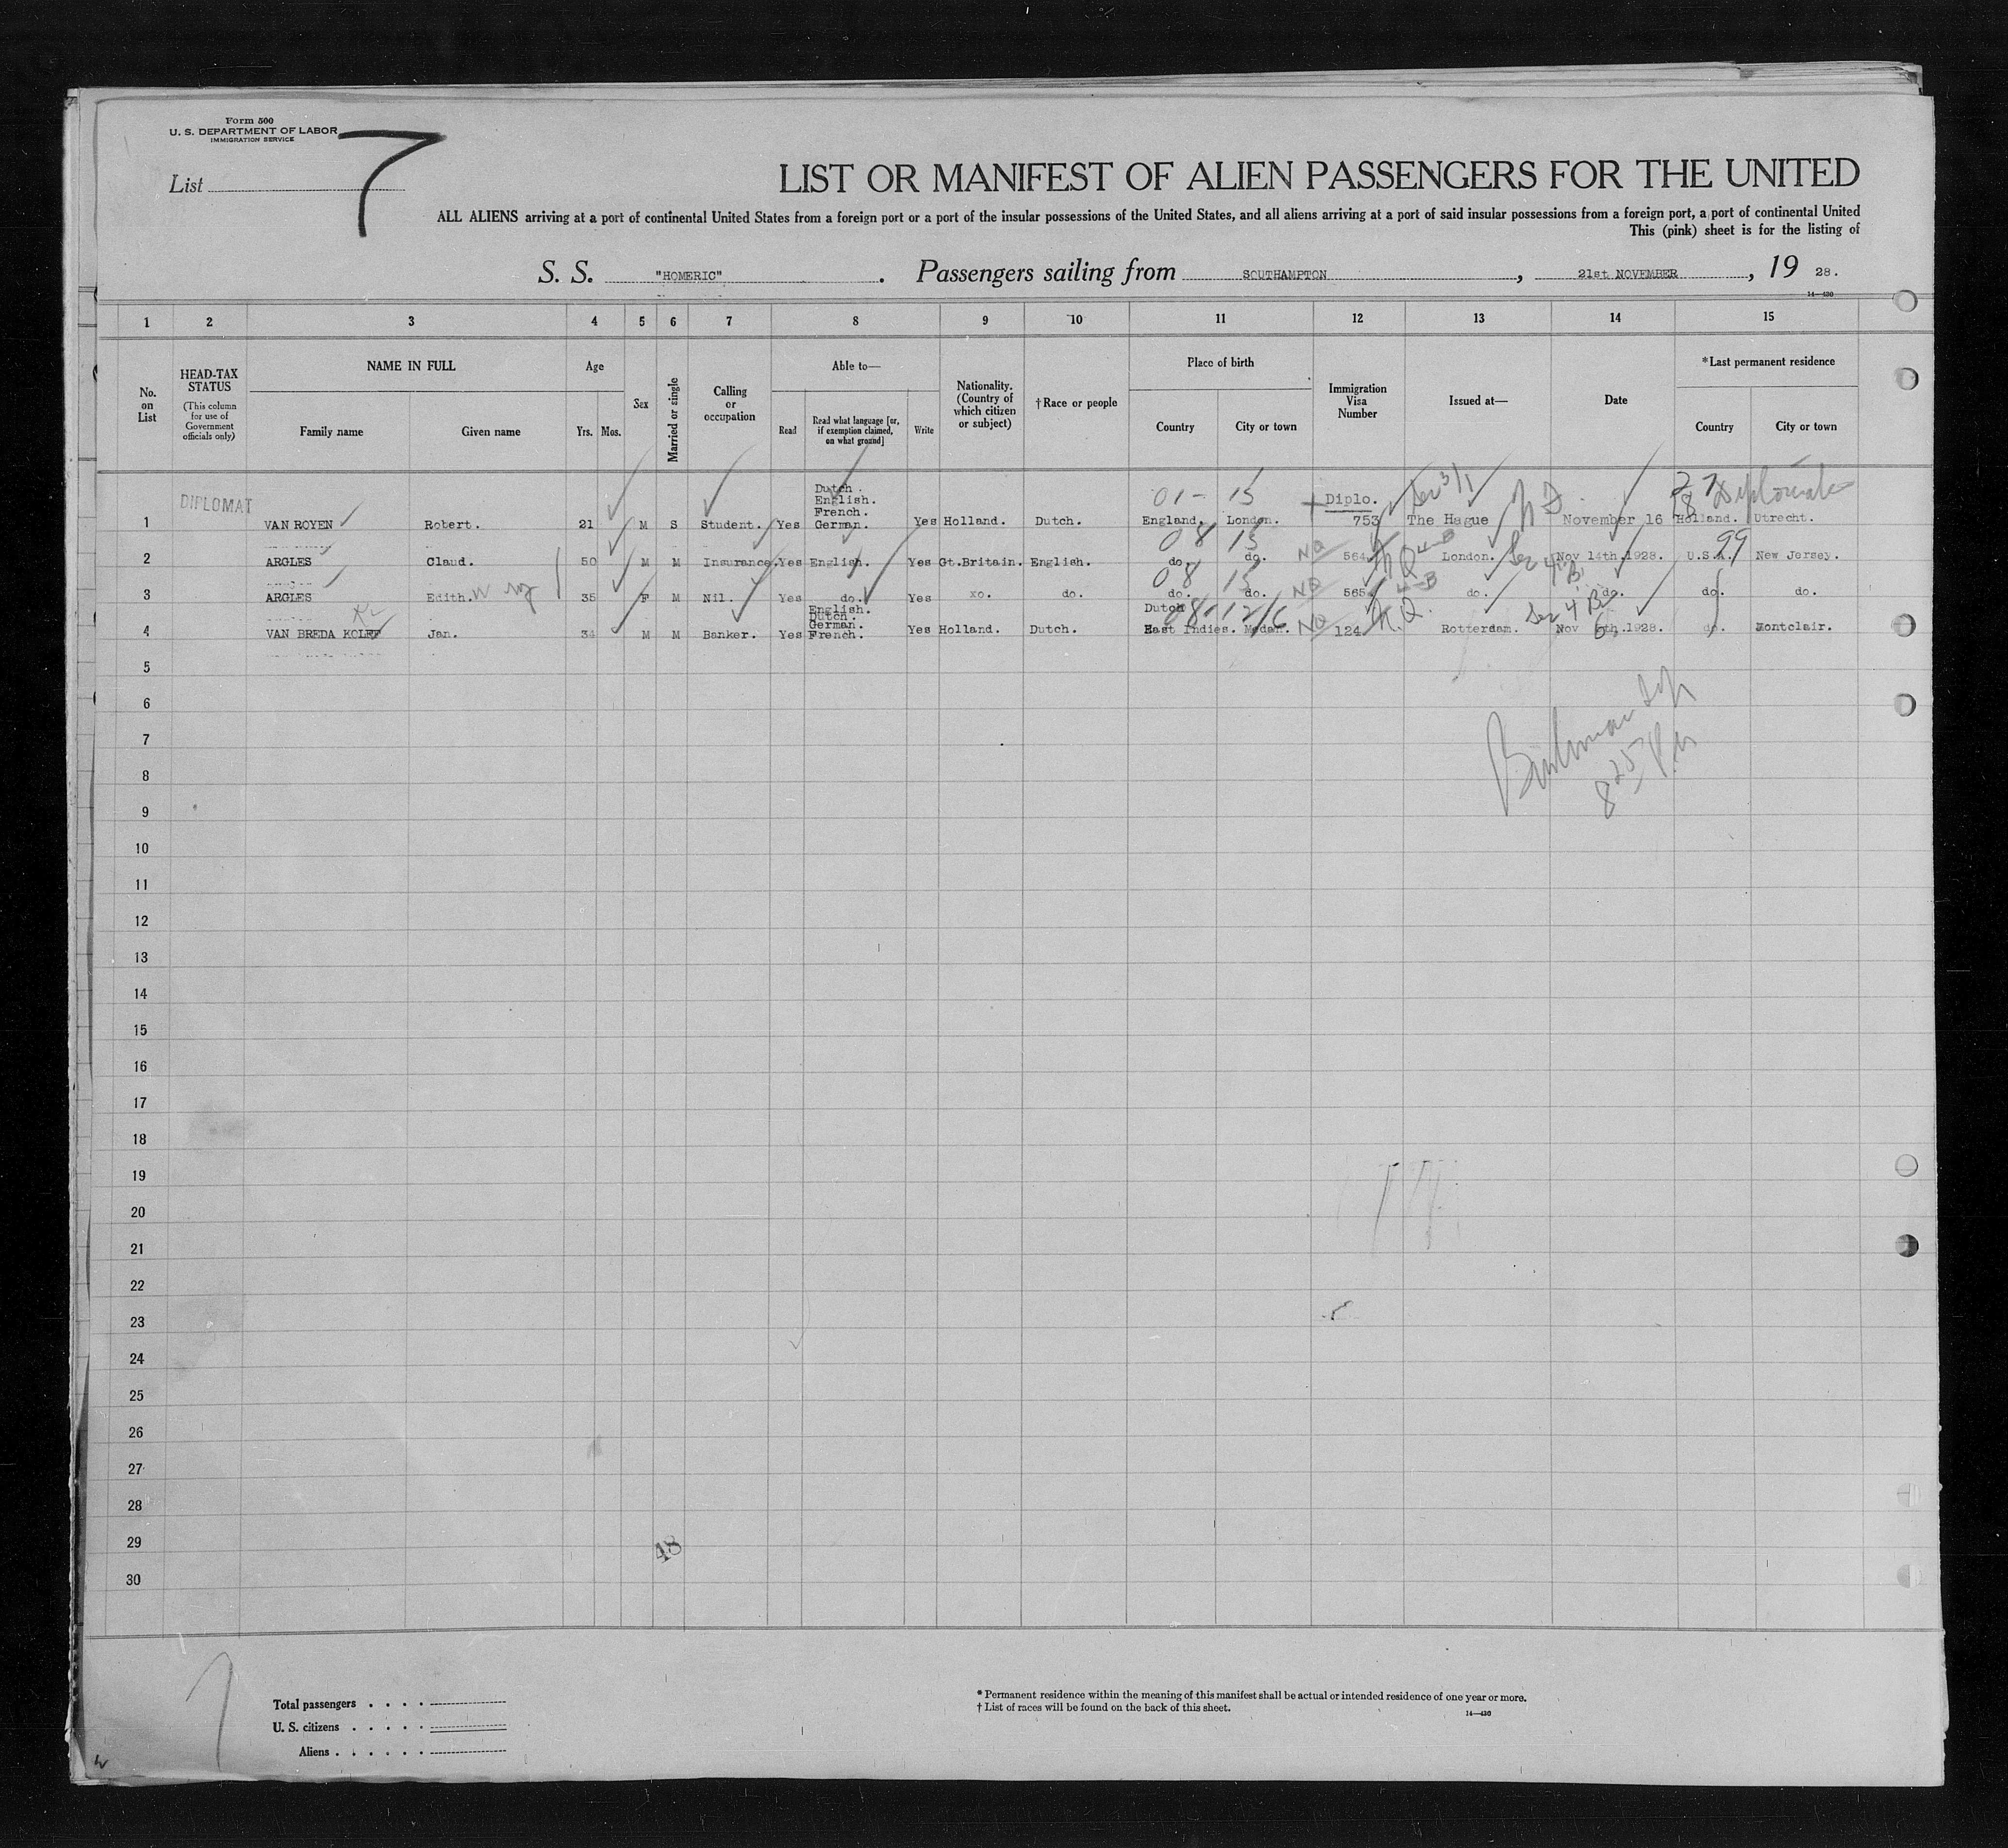 Form 500
U. S. DEPARTMENT OF LABOR
IMMIGRATION SERVICE
List 7
LIST OR MANIFEST OF ALIEN PASSENGERS FOR THE UNITED
ALL ALIENS arriving at a port of continental United States from a foreign port or a port of the insular possessions of the United States, and all aliens arriving at a port of said insular possessions from a foreign port, a port of continental United
This (pink) sheet is for the listing of
S. S. "HOMERIC". Passengers sailing from SOUTHAMPTON, 21st NOVEMBER, 19 28.
14—430
1 2 3 4 5 6 7 8 9 10 11 12 13 14 15
No. on List
HEAD-TAX STATUS (This column for use of Government officials only)
NAME IN FULL
Family name
Given name
Age
Yrs. Mos.
Sex
Married or single
Calling or occupation
Able to—
Read
Read what language [or, if exemption claimed, on what ground]
Write
Nationality. (Country of which citizen or subject)
†Race or people
Place of birth
Country
City or town
Immigration Visa Number
Issued at—
Date
*Last permanent residence
Country
City or town
1 DIPLOMAT VAN ROYEN Robert. 21 M S Student. Yes Dutch. English. French. German. Yes Holland. Dutch. 01- 15 England. London. Diplo. 753 The Hague ND November 16 27 Diplomat Holland. Utrecht.
2 ARGLES Claud. 50 M M Insurance. Yes English. Yes Gt.Britain. English. 08 15 do. do. NQ 564 NQ 4-B London. Sec 4 B Nov 14th.1928. U.S.A. 99 New Jersey.
3 ARGLES Edith. 35 F M Nil. Yes do. Yes xo. do. 08 15 do. do. NQ 565 4-B do. do. do. do.
4 VAN BREDA KOLFF Jan. 34 M M Banker. Yes English. Dutch. German. French. Yes Holland. Dutch. Dutch East Indies. Medan. NQ 124 N.Q. Rotterdam. Sec 4 B Nov 6th.1928. do. Montclair.
5
6
7
8
9
10
11
12
13
14
15
16
17
18
19
20
21
22
23
24
25
26
27
28
29
30
8 25 PM
48
7
Total passengers . . . .
U. S. citizens . . . . .
Aliens . . . . . .
* Permanent residence within the meaning of this manifest shall be actual or intended residence of one year or more.
† List of races will be found on the back of this sheet.
14—430